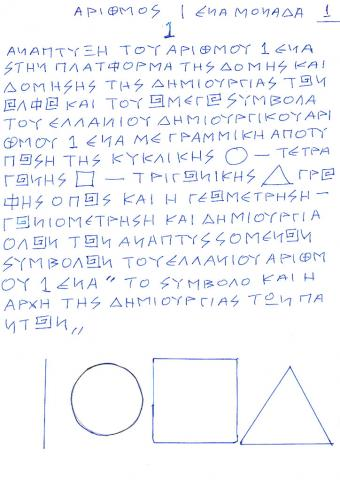 ΑΡΙΘΜΟΣ 1 ΕΝΑ ΜΟΝΑΔΑ 1
1
ΑΝΑΠΤΥΞΗ ΤΟΥ ΑΡΙΘΜΟΥ 1 ΕΝΑ
ΣΤΗΝ ΠΛΑΤΦΟΡΜΑ ΤΗΣ ΔΟΜΗΣ ΚΑΙ
ΔΟΜΗΣΗΣ ΤΗΣ ΔΗΜΙΟΥΡΓΙΑΣ ΤΩΝ
ΑΛΦΑ ΚΑΙ ΤΟΥ ΩΜΕΓΑ ΣΥΜΒΟΛΑ
ΤΟΥ ΕΛΛΑΝΙΟΥ ΔΗΜΙΟΥΡΓΙΚΟΥ ΑΡΙ
ΘΜΟΥ 1 ΕΝΑ ΜΕ ΓΡΑΜΜΙΚΗ ΑΠΟΤΥ
ΠΩΣΗ ΤΗΣ ΚΥΚΛΙΚΗΣ ○ — ΤΕΤΡΑ
ΓΩΝΗΣ □ — ΤΡΙΓΩΝΙΚΗΣ △ ΓΡΑ
ΦΗΣ ΟΠΩΣ ΚΑΙ Η ΓΕΩΜΕΤΡΗΣΗ —
ΓΩΝΙΟΜΕΤΡΗΣΗ ΚΑΙ ΔΗΜΙΟΥΡΓΙΑ
ΟΛΩΝ ΤΩΝ ΑΝΑΠΤΥΣΣΟΜΕΝΩΝ
ΣΥΜΒΟΛΩΝ ΤΟΥ ΕΛΛΑΝΙΟΥ ΑΡΙΘΜ
ΟΥ 1 ΕΝΑ " ΤΟ ΣΥΜΒΟΛΟ ΚΑΙ Η
ΑΡΧΗ ΤΗΣ ΔΗΜΙΟΥΡΓΙΑΣ ΤΩΝ ΠΑ
ΝΤΩΝ „